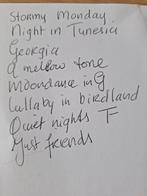 Stormy Monday
Night in Tunesia
Georgia
a mellow tone
Moondance in G
Lullaby in birdland
Quiet nights F
Just friends